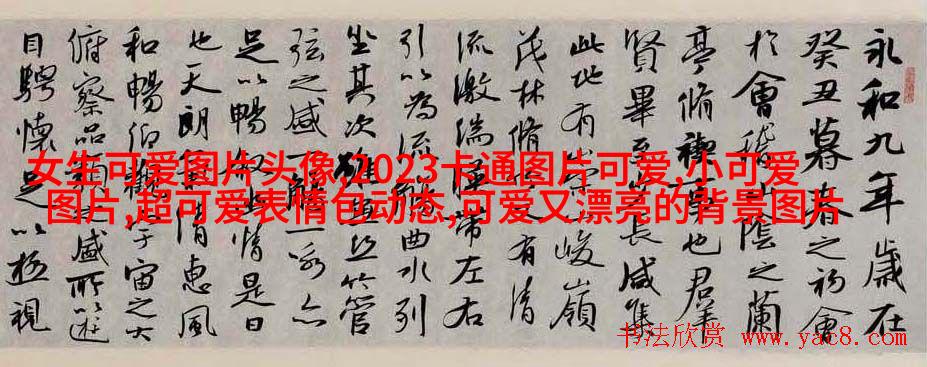 永和九年歲在
癸丑暮春之初會
於會稽山陰之蘭
亭脩禊事也群
賢畢至少長咸集
此地有崇山峻嶺
茂林脩竹又有清
流激湍暎帶左右
引以為流觴曲水列
坐其次雖無絲竹管
弦之盛一觴一詠亦
足以暢敘幽情是日
也天朗氣清惠風
和暢仰觀宇宙之大
俯察品類之盛所以遊
目騁懷足以極視
女生可爱图片头像,2023卡通图片可爱,小可爱
图片,超可爱表情包动态,可爱又漂亮的背景图片
书法欣赏 www.yac8.com